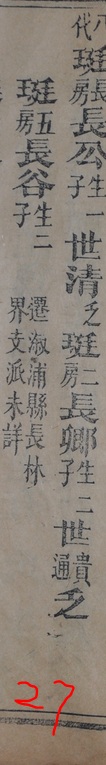 八
代珽房長長公生一子世清之珽房二長卿生二子世貴通之
珽房五長谷生二子
遷漵浦縣長林
界支派未詳
27